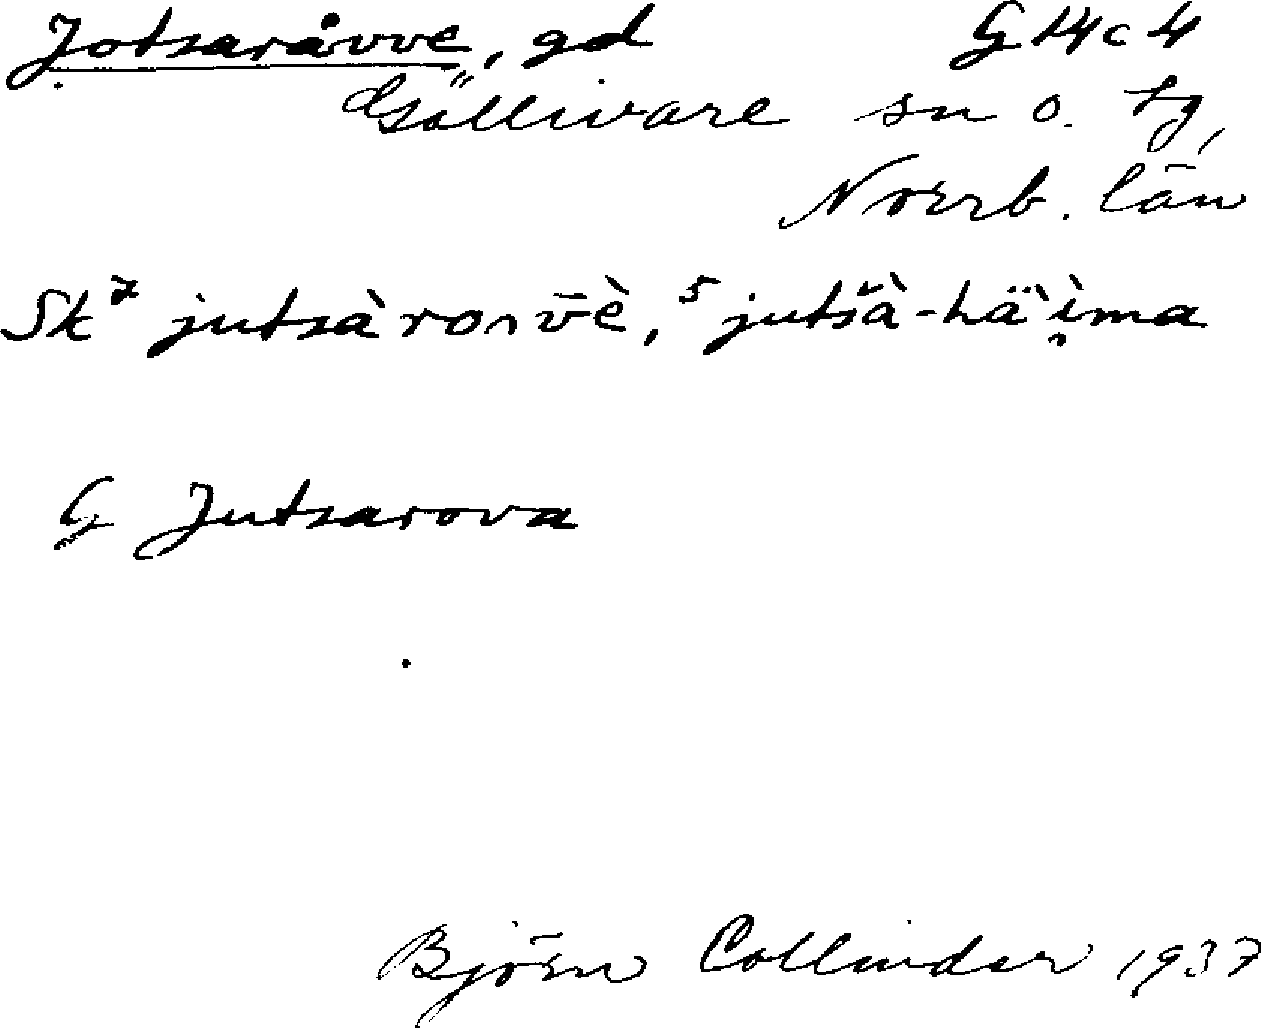 Jotsaråvve, gd G 14 c 4
Gällivare sn o. tg,
Norrb. län
Sk⁷ jutsàrov̄è, ⁵jutšà-hä̀ìma
G Jutsarova
Björn Collinder 1937